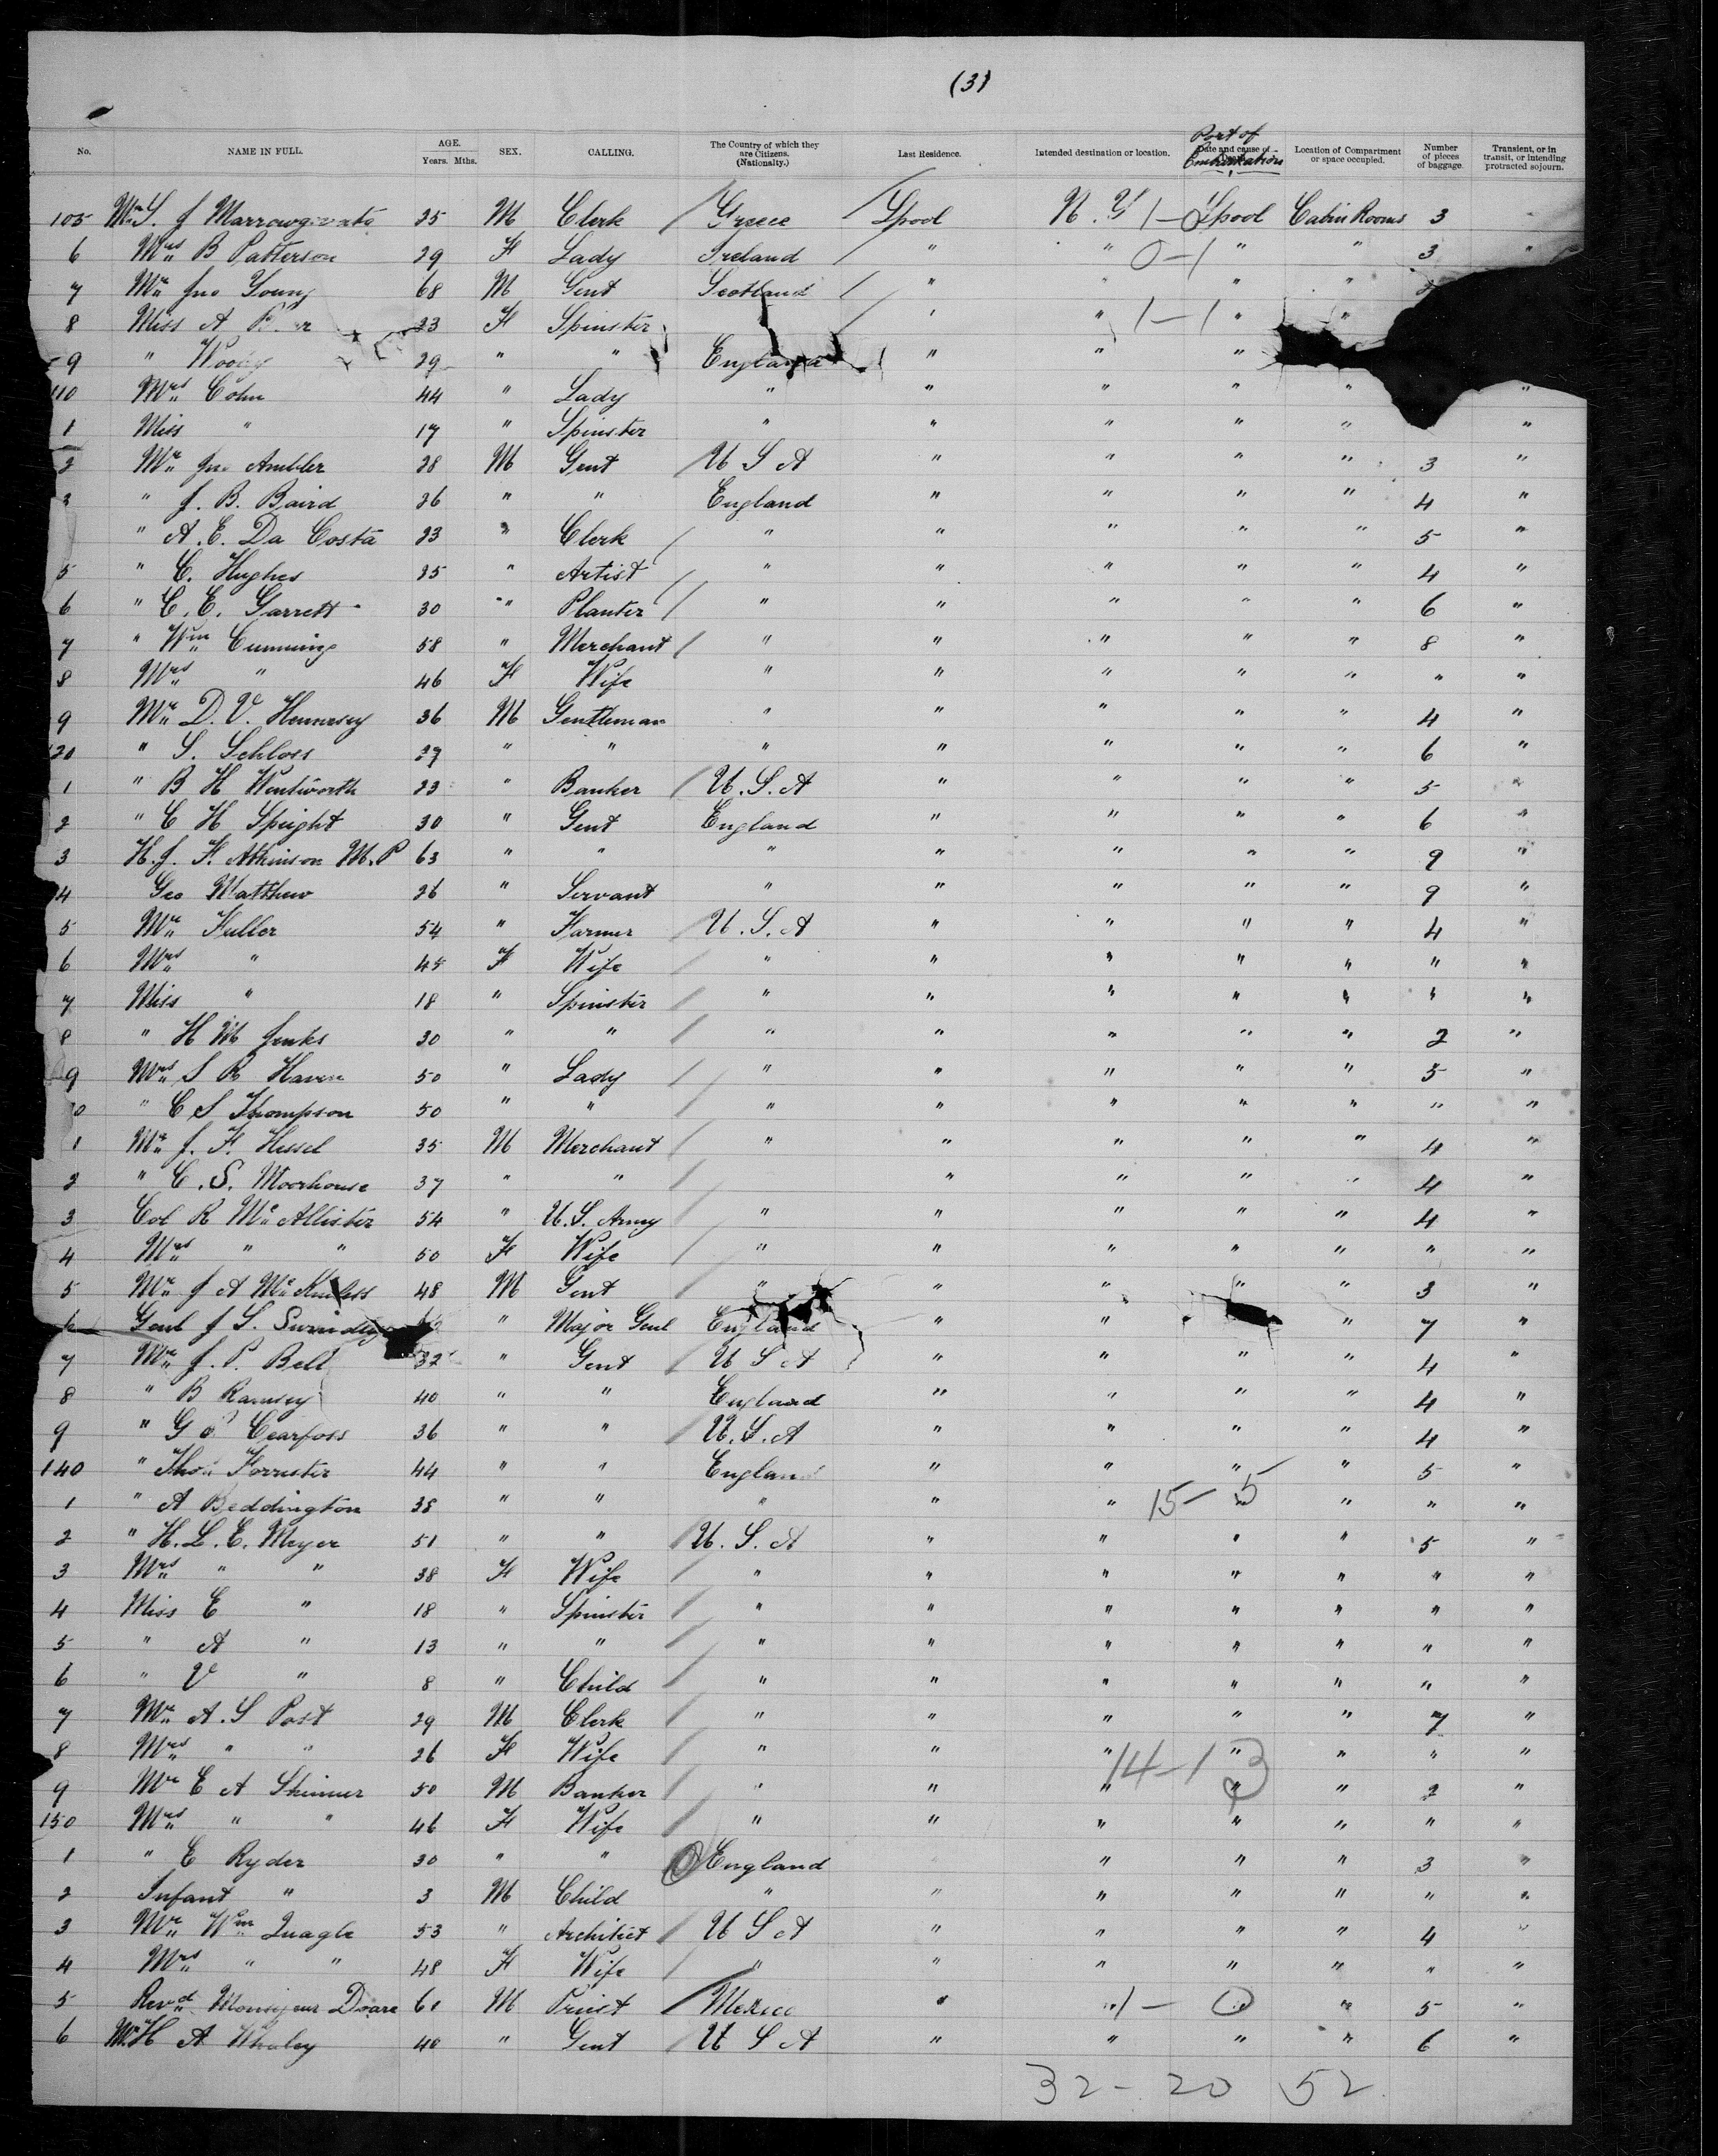 (3)
No. NAME IN FULL. AGE. Years. Mths. SEX. CALLING. The Country of which they are Citizens. (Nationality.) Last Residence. Intended destination or location. Date and cause of Port of Embarkation Location of Compartment or space occupied. Number of pieces of baggage. Transient, or in transit, or intending protracted sojourn.
105 Mr S. J 25 M Clerk Greece Lpool N. Y 1- Lpool Cabin Rooms 3 "
6 Mrs B Patterson 29 F Lady Ireland " " 0-1 " " 3 "
7 Mr Jno Young 68 M Gent Scotland " " " "
8 Miss A 23 F Spinster " " 1-1 " "
9 " Woody 29 " " England " " "
110 Mrs Cohn 44 " Lady " " " " " "
1 Miss " 17 " Spinster " " " " " "
2 Mr Jno Ambler 28 M Gent U S A " " " " 3 "
3 " J. B. Baird 26 " " England " " " " 4 "
" A. E. Da Costa 23 " Clerk " " " " " 5 "
5 " C. Hughes 25 " Artist " " " " " 4 "
6 " C. E. Garrett 30 " Planter " " " " " 6 "
7 " Wm Cumming 58 " Merchant " " " " " 8 "
8 Mrs " 46 F Wife " " " " " " "
9 Mr D. V. Hennesey 36 M Gentleman " " " " " 4 "
120 " S. Schloss 27 " " " " " " " 6 "
1 " B H Wentworth 23 " Banker U. S. A " " " " 5 "
2 " C H Speight 30 " Gent England " " " " 6 "
3 H. J. F. Atkinson M. P 63 " " " " " " " 9 "
4 Geo Matthew 26 " Servant " " " " " 9 "
5 Mr Fuller 54 " Farmer U. S. A " " " " 4 "
6 Mrs " 45 F Wife " " " " " " "
7 Miss " 18 " Spinster " " " " " " "
8 " H M Jenks 30 " " " " " " " 2 "
9 Mrs S R Haven 50 " Lady " " " " " 5 "
0 " C S Thompson 50 " " " " " " " " "
1 Mr J. F. Hessel 35 M Merchant " " " " " 4 "
2 " C. S. Moorhouse 37 " " " " " " 4 "
3 Col R McAllister 54 " U. S. Army " " " " " 4 "
4 Mrs " " 50 F Wife " " " " " " "
5 Mr J A 48 M Gent " " " " " 3 "
Genl J S. " Major Genl England " " " 7 "
7 Mr J. P. Bell 32 " Gent U S A " " " " 4 "
8 " B Ramsey 40 " " England " " " " 4 "
9 " G Cearfoss 36 " " U. S. A " " " " 4 "
140 " Thos Forrester 44 " " England " " " " 5 "
1 " A Beddington 38 " " " " " 15-5 " " " "
2 " H. L. E. Meyer 51 " " U. S. A " " " " 5 "
3 Mrs " " 38 F Wife " " " " " " "
4 Miss E " 18 " Spinster " " " " " " "
5 " A " 13 " " " " " " " " "
6 " V " 8 " Child " " " " " " "
7 Mr A. S Post 29 M Clerk " " " " " 7 "
8 Mrs " " 26 F Wife " " " 14-13 " " " "
9 Mr E A Skinner 50 M Banker " " " " " 2 "
150 Mrs " " 46 F Wife " " " " " " "
1 " E Ryder 30 " " England " " " 3 "
2 Infant " 3 M Child " " " " " " "
3 Mr Wm Quagle 53 " Architect U S A " " " " 4 "
4 Mrs " " 48 F Wife " " " " " " "
5 Revd M Priest Mexico " " 1-0 " " 5 "
6 Mr H A Whaley 40 " Gent U S A " " " " 6 "
32-20 52